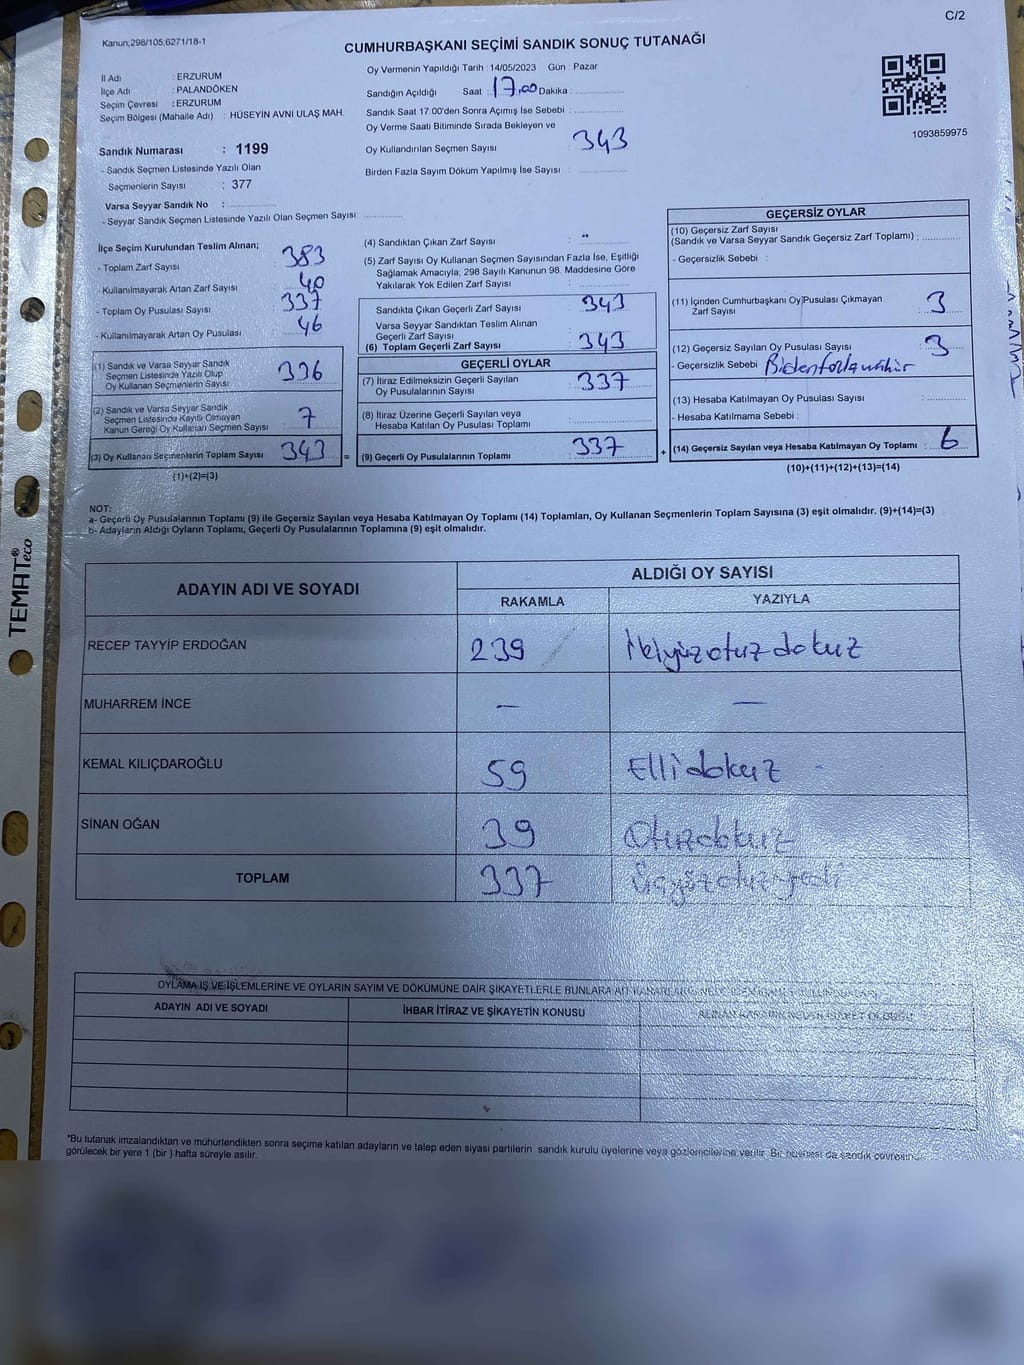 C/2
Kanun;298/105;6271/18-1
CUMHURBAŞKANI SEÇİMİ SANDIK SONUÇ TUTANAĞI
İl Adı : ERZURUM
İlçe Adı : PALANDÖKEN
Seçim Çevresi : ERZURUM
Seçim Bölgesi (Mahalle Adı) : HÜSEYİN AVNİ ULAŞ MAH.
Oy Vermenin Yapıldığı Tarih : 14/05/2023 Gün : Pazar
Sandığın Açıldığı Saat : 17,00 Dakika :
Sandık Saat 17:00'den Sonra Açımış İse Sebebi :
Oy Verme Saati Bitiminde Sırada Bekleyen ve
Oy Kullandırılan Seçmen Sayısı : 343
Birden Fazla Sayım Döküm Yapılmış İse Sayısı :
1093859975
Sandık Numarası : 1199
- Sandık Seçmen Listesinde Yazılı Olan
Seçmenlerin Sayısı : 377
Varsa Seyyar Sandık No :
- Seyyar Sandık Seçmen Listesinde Yazılı Olan Seçmen Sayısı :
İlçe Seçim Kurulundan Teslim Alınan;
- Toplam Zarf Sayısı : 383
- Kullanılmayarak Artan Zarf Sayısı : 40
- Toplam Oy Pusulası Sayısı : 337
- Kullanılmayarak Artan Oy Pusulası : 46
(1) Sandık ve Varsa Seyyar Sandık
Seçmen Listesinde Yazılı Olup
Oy Kullanan Seçmenlerin Sayısı : 336
(2) Sandık ve Varsa Seyyar Sandık
Seçmen Listesinde Kayıtlı Olmayan
Kanun Gereği Oy Kullanan Seçmen Sayısı : 7
(3) Oy Kullanan Seçmenlerin Toplam Sayısı : 343 =
(1)+(2)=(3)
(4) Sandıktan Çıkan Zarf Sayısı :
(5) Zarf Sayısı Oy Kullanan Seçmen Sayısından Fazla İse, Eşitliği
Sağlamak Amacıyla; 298 Sayılı Kanunun 98. Maddesine Göre
Yakılarak Yok Edilen Zarf Sayısı :
Sandıkta Çıkan Geçerli Zarf Sayısı : 343
Varsa Seyyar Sandıktan Teslim Alınan
Geçerli Zarf Sayısı :
(6) Toplam Geçerli Zarf Sayısı : 343
GEÇERLİ OYLAR
(7) İtiraz Edilmeksizin Geçerli Sayılan
Oy Pusulalarının Sayısı : 337
(8) İtiraz Üzerine Geçerli Sayılan veya
Hesaba Katılan Oy Pusulası Toplamı :
(9) Geçerli Oy Pusulalarının Toplamı : 337 +
GEÇERSİZ OYLAR
(10) Geçersiz Zarf Sayısı
(Sandık ve Varsa Seyyar Sandık Geçersiz Zarf Toplamı) :
- Geçersizlik Sebebi :
(11) İçinden Cumhurbaşkanı Oy Pusulası Çıkmayan
Zarf Sayısı : 3
(12) Geçersiz Sayılan Oy Pusulası Sayısı : 3
- Geçersizlik Sebebi : Birdenfazla mühür
(13) Hesaba Katılmayan Oy Pusulası Sayısı :
- Hesaba Katılmama Sebebi :
(14) Geçersiz Sayılan veya Hesaba Katılmayan Oy Toplamı : 6
(10)+(11)+(12)+(13)=(14)
NOT:
a- Geçerli Oy Pusulalarının Toplamı (9) ile Geçersiz Sayılan veya Hesaba Katılmayan Oy Toplamı (14) Toplamları, Oy Kullanan Seçmenlerin Toplam Sayısına (3) eşit olmalıdır. (9)+(14)=(3)
b- Adayların Aldığı Oyların Toplamı, Geçerli Oy Pusulalarının Toplamına (9) eşit olmalıdır.
ADAYIN ADI VE SOYADI
ALDIĞI OY SAYISI
RAKAMLA YAZIYLA
RECEP TAYYİP ERDOĞAN 239 İkiyüzotuz dokuz
MUHARREM İNCE — —
KEMAL KILIÇDAROĞLU 59 Ellidokuz
SİNAN OĞAN 39 Otuzdokuz
TOPLAM 337 Üçyüzotuzyedi
OYLAMA İŞ VE İŞLEMLERİNE VE OYLARIN SAYIM VE DÖKÜMÜNE DAİR ŞİKAYETLERLE BUNLARA AİT KARARLAR
ADAYIN ADI VE SOYADI İHBAR İTİRAZ VE ŞİKAYETİN KONUSU
*Bu tutanak imzalandıktan ve mühürlendikten sonra seçime katılan adayların ve talep eden siyasi partilerin sandık kurulu üyelerine veya gözlemcilerine verilir. Bir nüshası da sandık çevresinde
görülecek bir yere 1 (bir ) hafta süreyle asılır.
TEMAT® eco